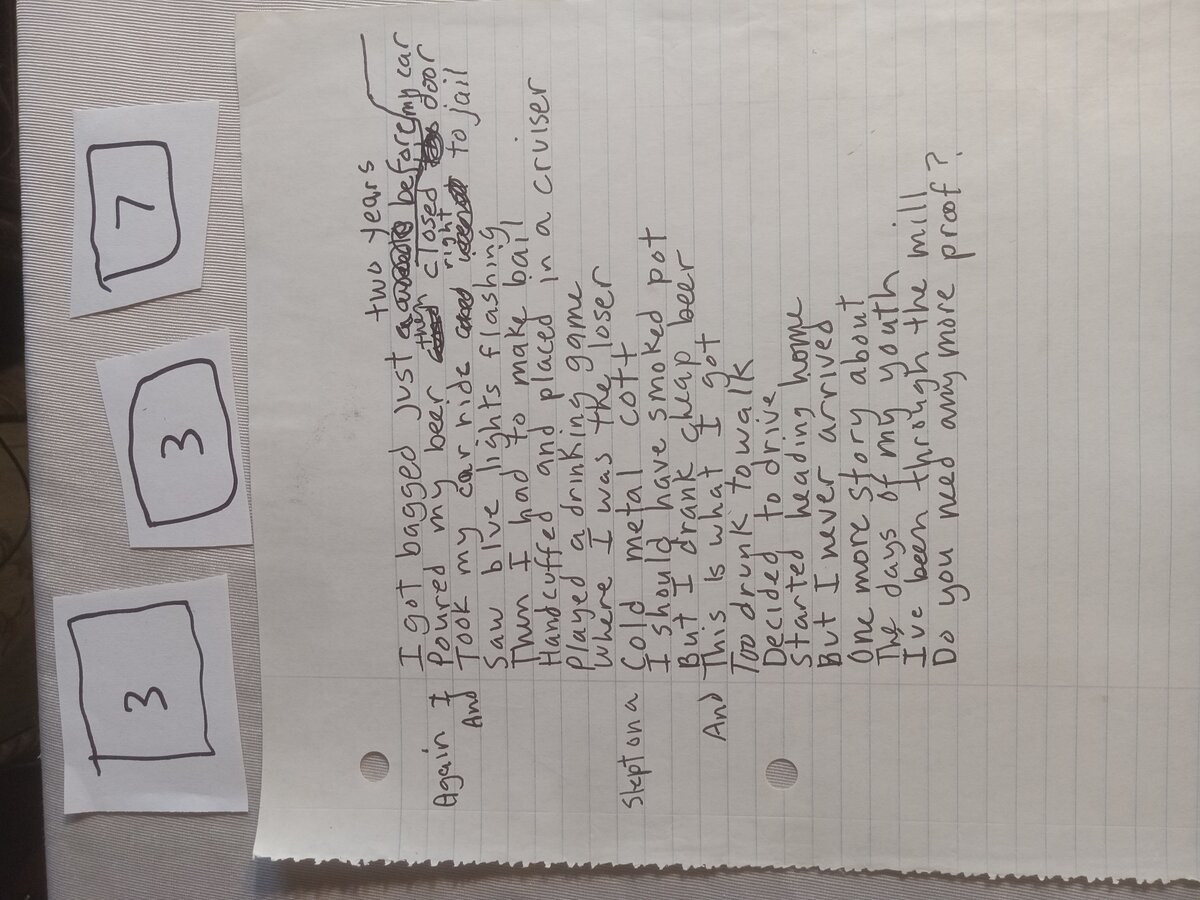 3 3 7
two years
I got bagged just before my car
Again I Poured my beer then closed door
And Took my car ride right to jail
Saw blue lights flashing
Then I had to make bail
Handcuffed and placed in a cruiser
Played a drinking game
Where I was the loser
Slept on a Cold metal cott
I should have smoked pot
But I drank cheap beer
And This is what I got
Too drunk to walk
Decided to drive
Started heading home
But I never arrived
One more story about
The days of my youth
I've been through the mill
Do you need any more proof?